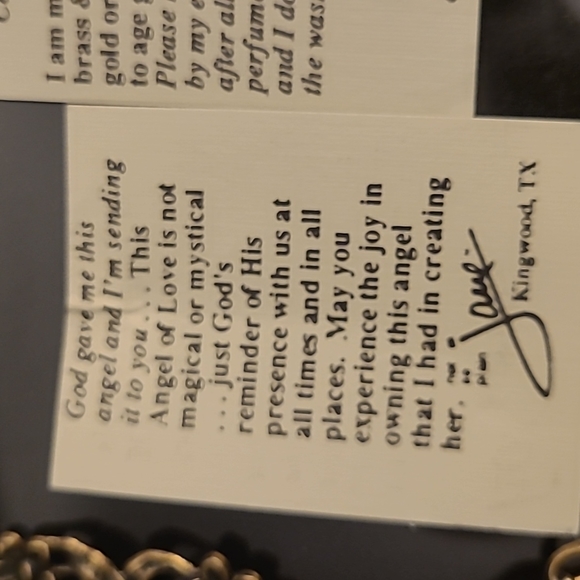 I am m
brass &
gold or
to age
Please
by my e
after al
perfum
and I do
the was.
God gave me this
angel and I'm sending
it to you . . . This
Angel of Love is not
magical or mystical
. . . just God's
reminder of His
presence with us at
all times and in all
places. May you
experience the joy in
owning this angel
that I had in creating
her.
Kingwood, TX